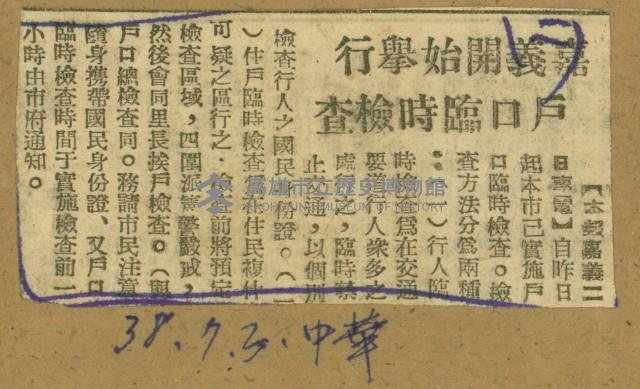 嘉義開始舉行
戶口臨時檢查
【本報嘉義二
日專電】自昨日
起本市已實施戶
口臨時檢查。檢
查方法分爲兩種
：（一）行人臨
時檢查爲在交通
要道人衆多之
處，臨時禁
止交通，以個別
檢查行人之國民身份證。（二
）住戶臨時檢查在住民複什
可疑之區行之，檢查前將預定
檢查區域，四圍派警警嚴戒，
然後會同里長挨戶檢查。（與
戶口總檢查同。務請市民注意
隨身携帶國民身份證、又戶口
臨時檢查時間于實施檢查前一
小時由市府通知。
高雄市立歷史博物館
KAOHSIUNG MUSEUM OF HISTORY
38.7.3.中華